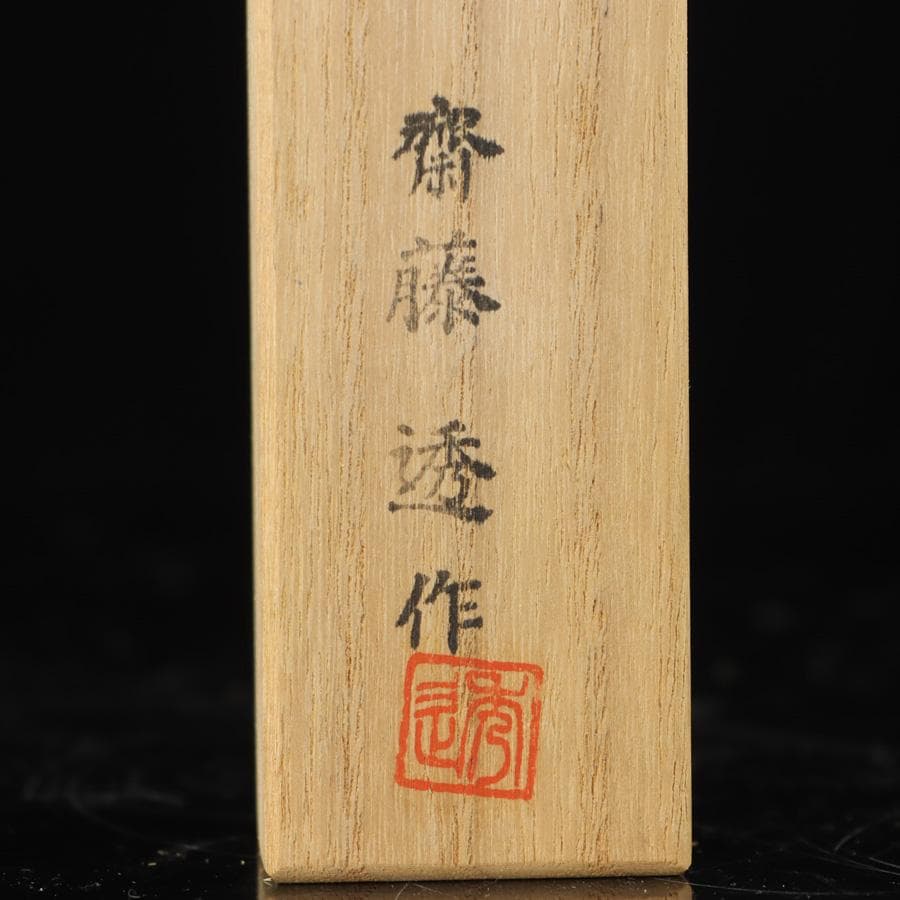 齋藤透作
透